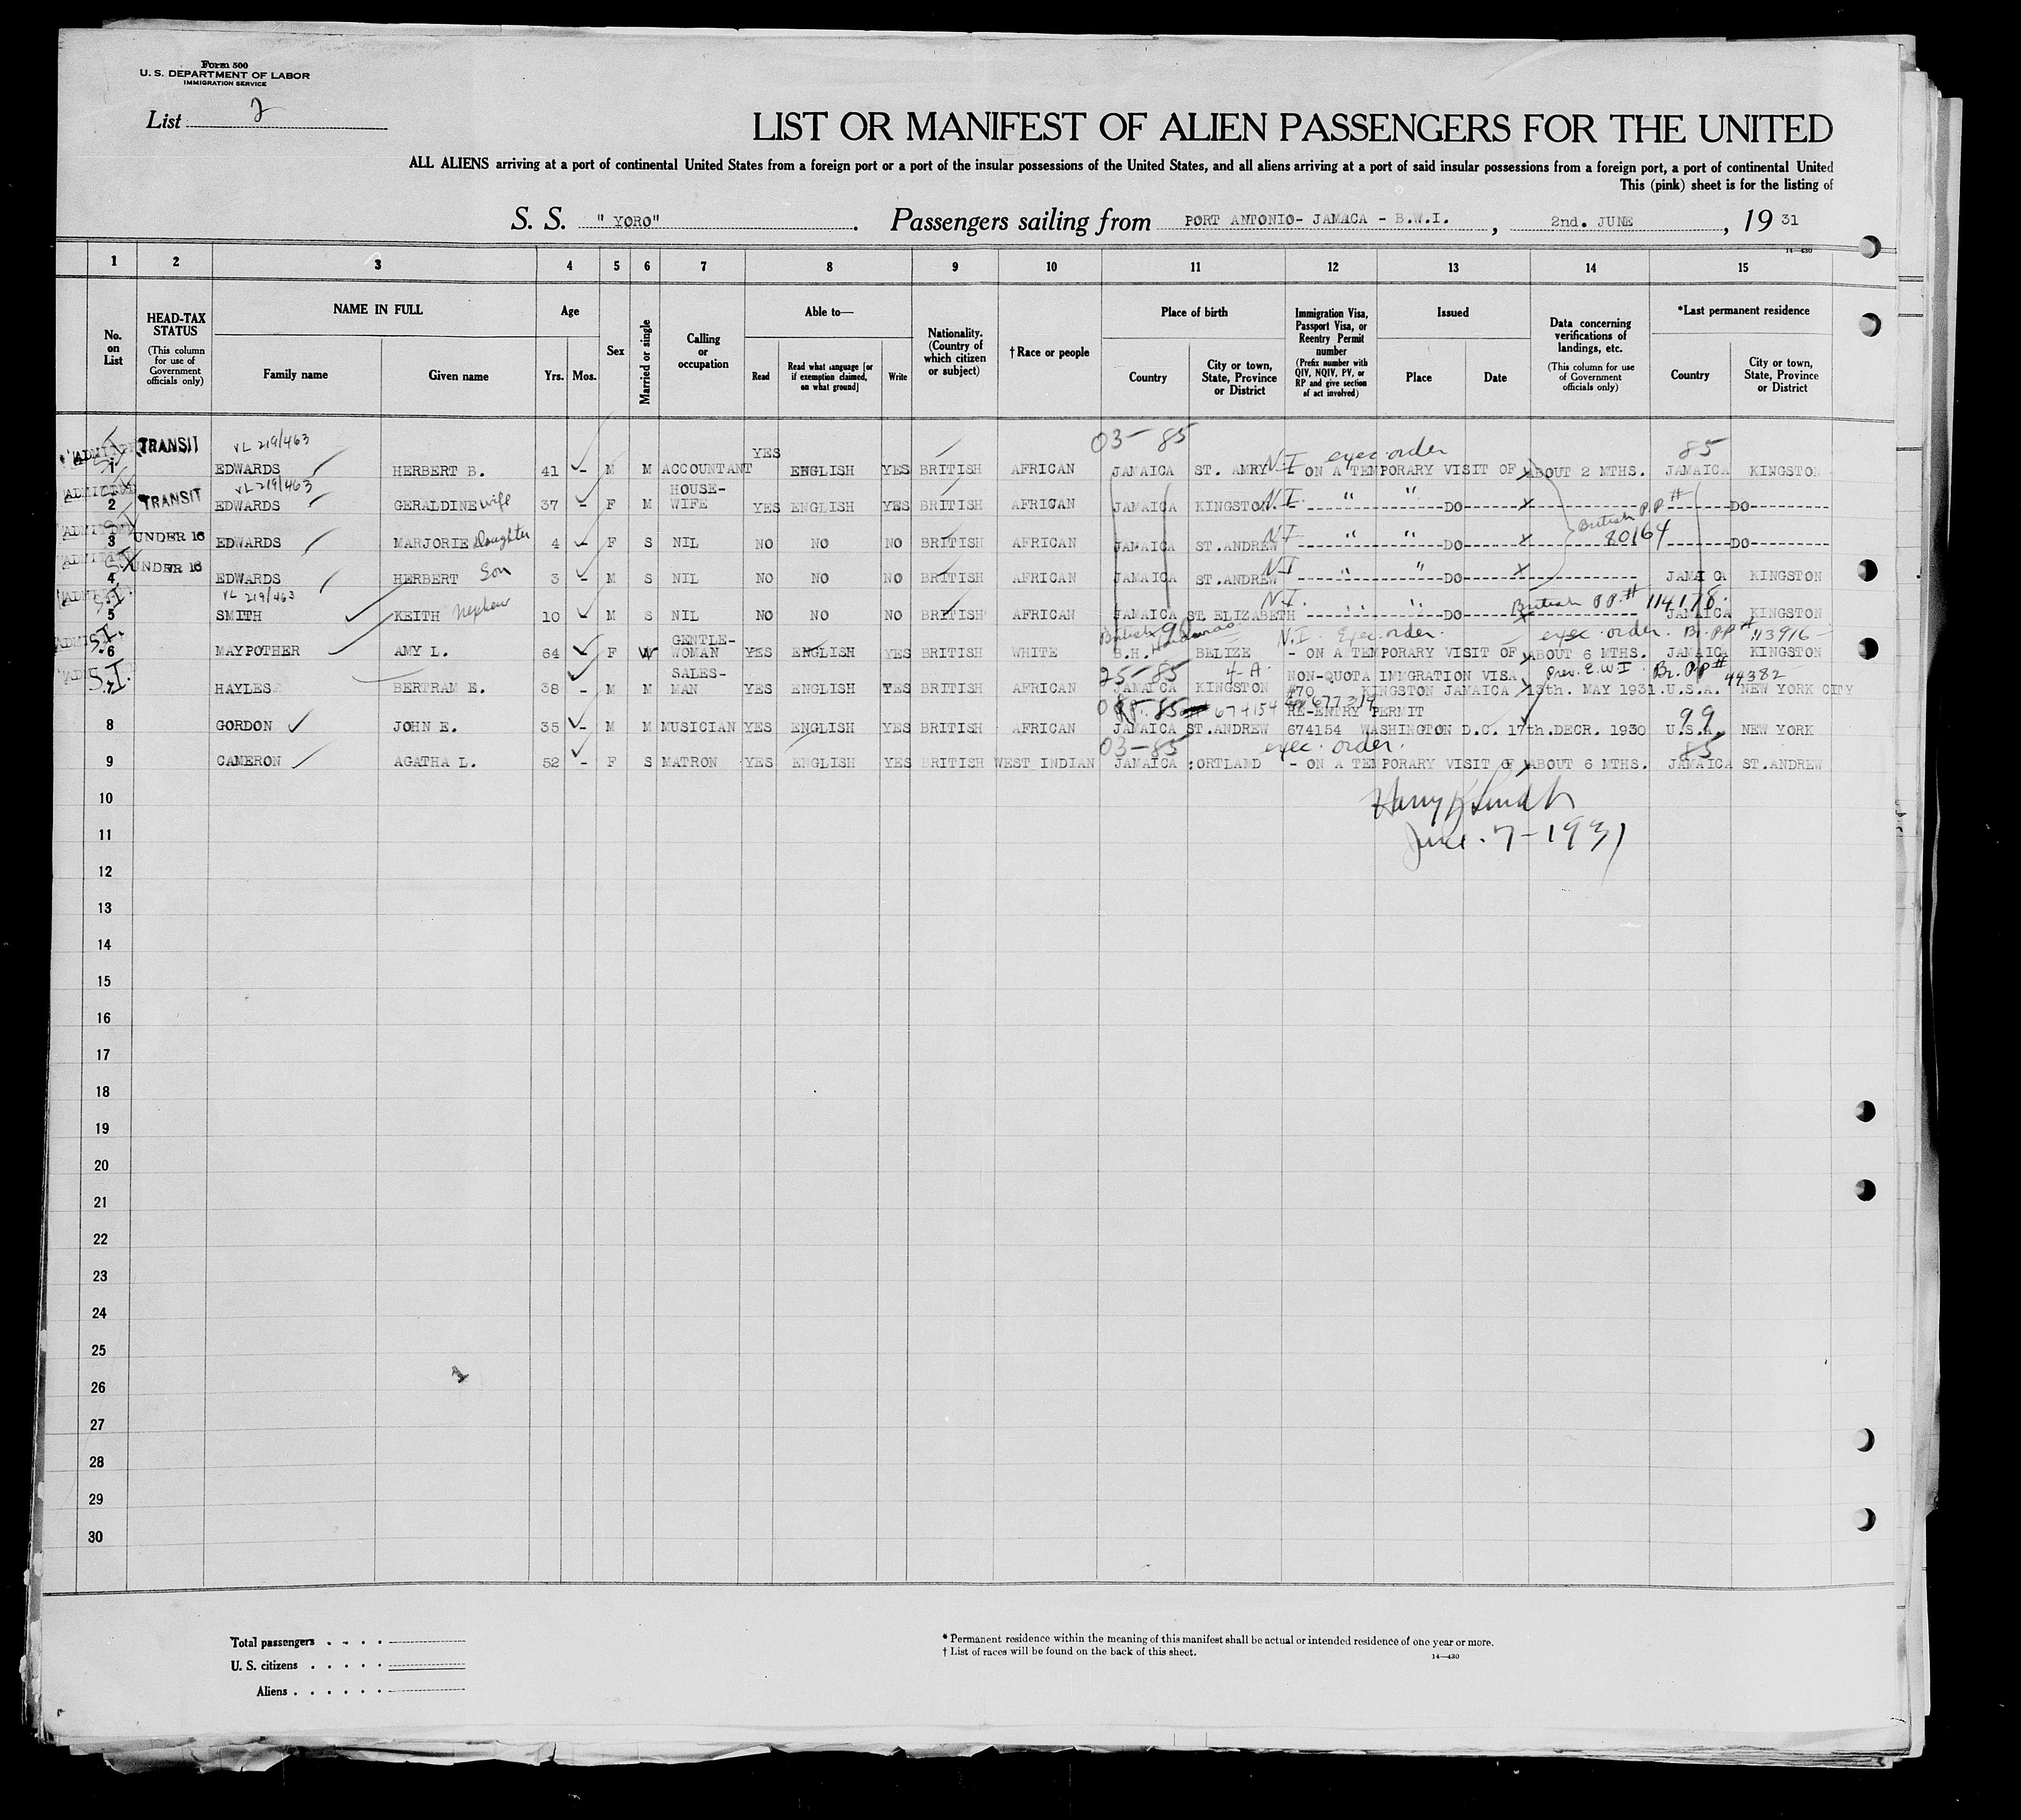 Form 500
U. S. DEPARTMENT OF LABOR
IMMIGRATION SERVICE
List 2
LIST OR MANIFEST OF ALIEN PASSENGERS FOR THE UNITED
ALL ALIENS arriving at a port of continental United States from a foreign port or a port of the insular possessions of the United States, and all aliens arriving at a port of said insular possessions from a foreign port, a port of continental United
This (pink) sheet is for the listing of
S. S. "YORO". Passengers sailing from PORT ANTONIO- JAMACA - B.W.I., 2nd. JUNE, 1931
14—430
1 2 3 4 5 6 7 8 9 10 11 12 13 14 15
No. on List
HEAD-TAX STATUS (This column for use of Government officials only)
NAME IN FULL
Family name
Given name
Age
Yrs. Mos.
Sex
Married or single
Calling or occupation
Able to—
Read
Read what language [or if exemption claimed, on what ground]
Write
Nationality. (Country of which citizen or subject)
†Race or people
Place of birth
Country
City or town, State, Province or District
Immigration Visa, Passport Visa, or Reentry Permit number (Prefix number with QIV, NQIV, PV, or RP and give section of act involved)
Issued
Place
Date
Data concerning verifications of landings, etc. (This column for use of Government officials only)
*Last permanent residence
Country
City or town, State, Province or District
ADMITTED TRANSIT VL 219/463 YES 03-85 N.I. exec. order 85
1 EDWARDS HERBERT B. 41 - M M ACCOUNTANT ENGLISH YES BRITISH AFRICAN JAMAICA ST. AMRY - ON A TEMPORARY VISIT OF ABOUT 2 MTHS. JAMAICA KINGSTON
ADMITTED TRANSIT VL 219/463 HOUSE-
2 EDWARDS GERALDINE wife 37 - F M WIFE YES ENGLISH YES BRITISH AFRICAN JAMAICA KINGSTON N.I. " " DO DO
ADMITTED UNDER 16 British P.P# 80164
3 EDWARDS MARJORIE Daughter 4 - F S NIL NO NO NO BRITISH AFRICAN JAMAICA ST.ANDREW N.I. " " DO DO
UNDER 16
4 EDWARDS HERBERT Son 3 - M S NIL NO NO NO BRITISH AFRICAN JAMAICA ST.ANDREW N.I. " " DO JAMAI CA KINGSTON
VL 219/463 N.I. " " British P.P.# 114178.
5 SMITH KEITH Nephew 10 - M S NIL NO NO NO BRITISH AFRICAN JAMAICA ST. ELIZABETH DO JAMAICA KINGSTON
S.I. GENTLE- British Honduras 90 N.I. Exec. order. exec. order. Br. PP# 113916-
6 MAYPOTHER AMY L. 64 F W WOMAN YES ENGLISH YES BRITISH WHITE B.H. BELIZE - ON A TEMPORARY VISIT OF ABOUT 6 MTHS. JAMAICA KINGSTON
S.I. SALES- 25-85 4-A NON-QUOTA IMMGRATION VISA Prev. E.W.I Br. P.P# 44382
7 HAYLES BERTRAM E. 38 - M M MAN YES ENGLISH YES BRITISH AFRICAN JAMAICA KINGSTON #70 KINGSTON JAMAICA 13th. MAY 1931. U.S.A. NEW YORK CITY
674154 RE-ENTRY PERMIT 99
8 GORDON JOHN E. 35 - M M MUSICIAN YES ENGLISH YES BRITISH AFRICAN JAMAICA ST.ANDREW 674154 WASHINGTON D.C. 17th.DECR. 1930 U.S.A. NEW YORK
03-85 exec. order. 85
9 CAMERON AGATHA L. 52 - F S MATRON YES ENGLISH YES BRITISH WEST INDIAN JAMAICA :ORTLAND - ON A TEMPORARY VISIT OF ABOUT 6 MTHS. JAMAICA ST.ANDREW
10
June. 7-1931
11
12
13
14
15
16
17
18
19
20
21
22
23
24
25
26
27
28
29
30
Total passengers . . . .
U. S. citizens . . . . .
Aliens . . . . . .
* Permanent residence within the meaning of this manifest shall be actual or intended residence of one year or more.
† List of races will be found on the back of this sheet.
14—430